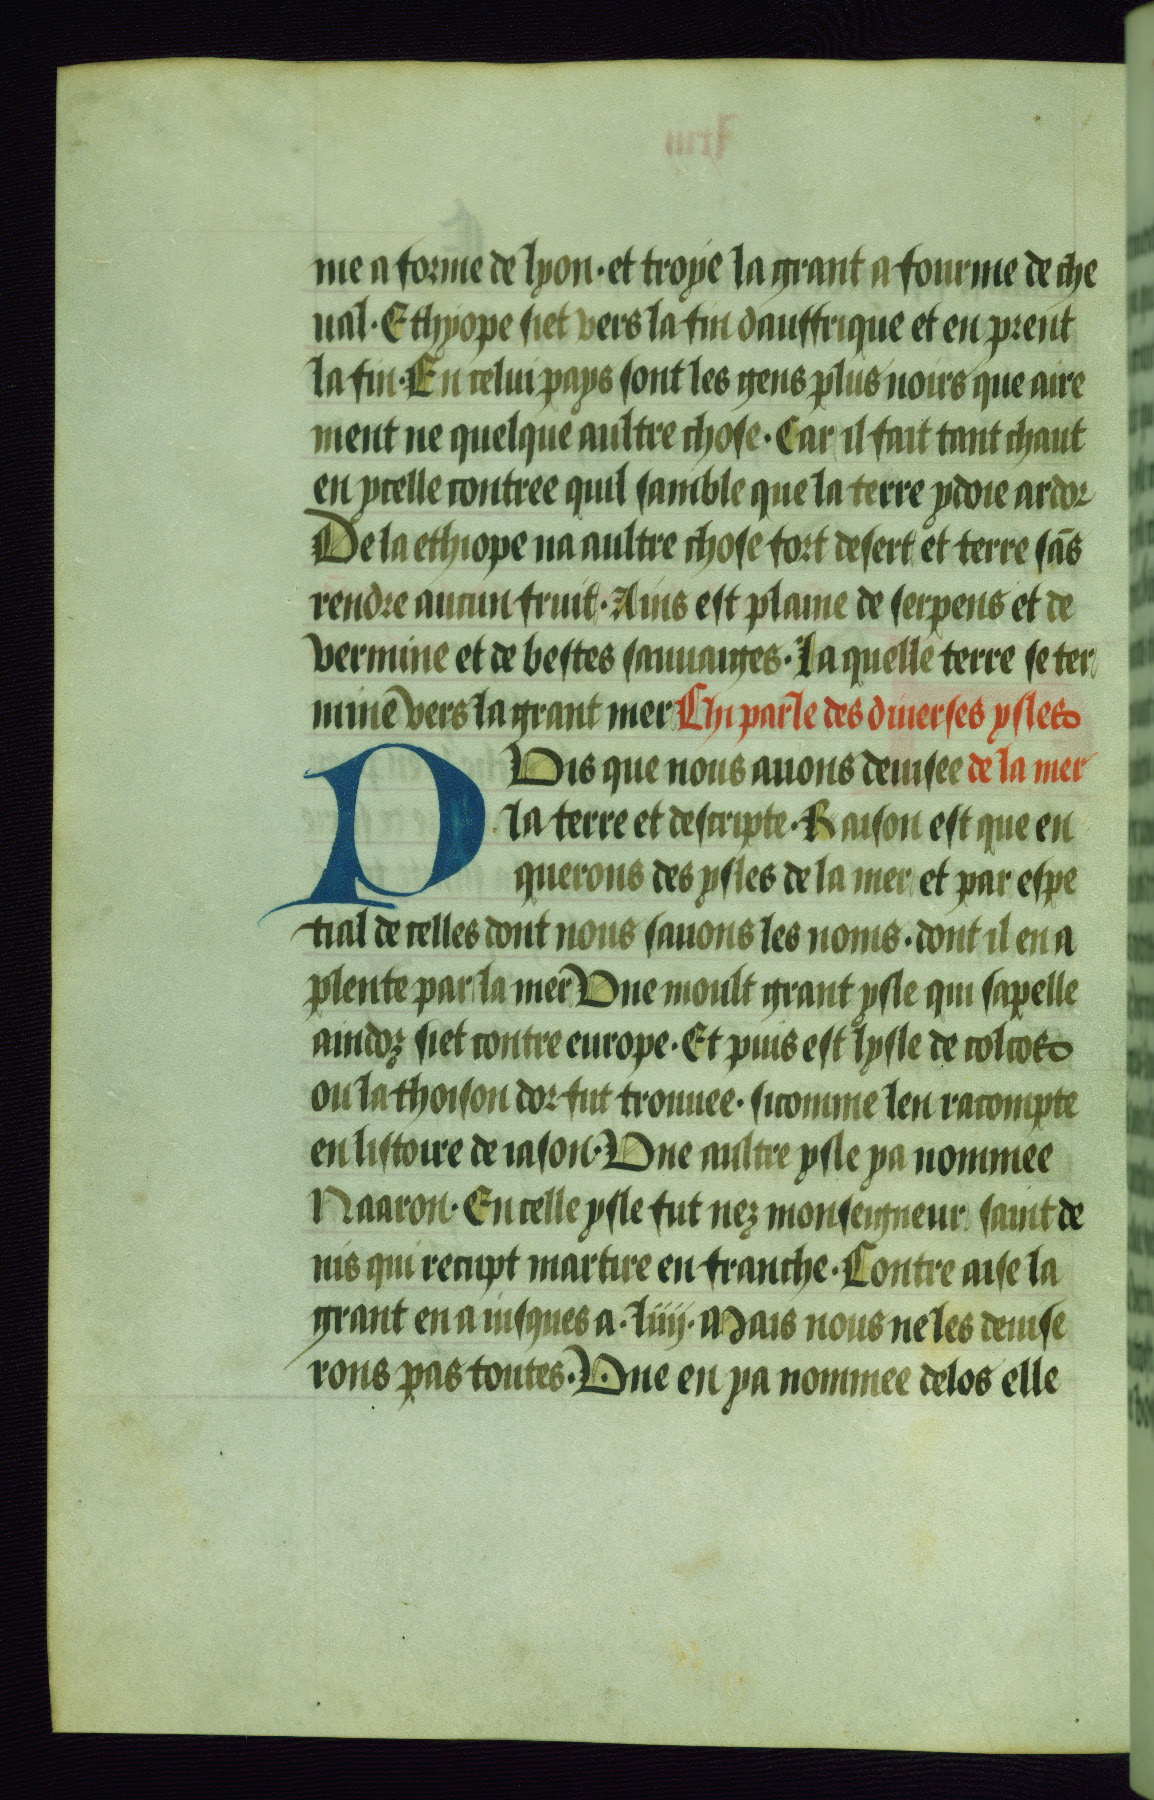 me a forme de lyon · et troye la grant a fourme de che
ual · Ethyope siet vers la fin dauffrique et en prent
la fin · En celui pays sont les gens plus noirs que aire
ment ne quelque aultre chose · Car il fait tant chaut
en ycelle contree quil samble que la terre y doie ardor
De la ethiope na aultre chose fort desert et terre sās
rendre aucun fruit · Ains est plaine de serpens et de
vermine et de bestes sauuaiges · La quelle terre se ter
mine vers la grant mer Chi parle des diuerses ysles
PVis que nous auons deuisee de la mer
la terre et descripte · Raison est que en
querons des ysles de la mer et par espe
tial de celles dont nous sauons les noms · dont il en a
plente par la mer Vne moult grant ysle qui sapelle
andoz siet contre europe · Et puis est lysle de colcos
ou la thoison dor fut trouuee · sicomme len racompte
en listoire de iason · Vne aultre ysle y a nommee
Naaron · En celle ysle fut nez monseigneur saint de
nis qui recupt martire en franche · Contre aise la
grant en a iusques a · liiij · Mais nous ne les deuise
rons pas toutes · Vne en y a nommee delos elle